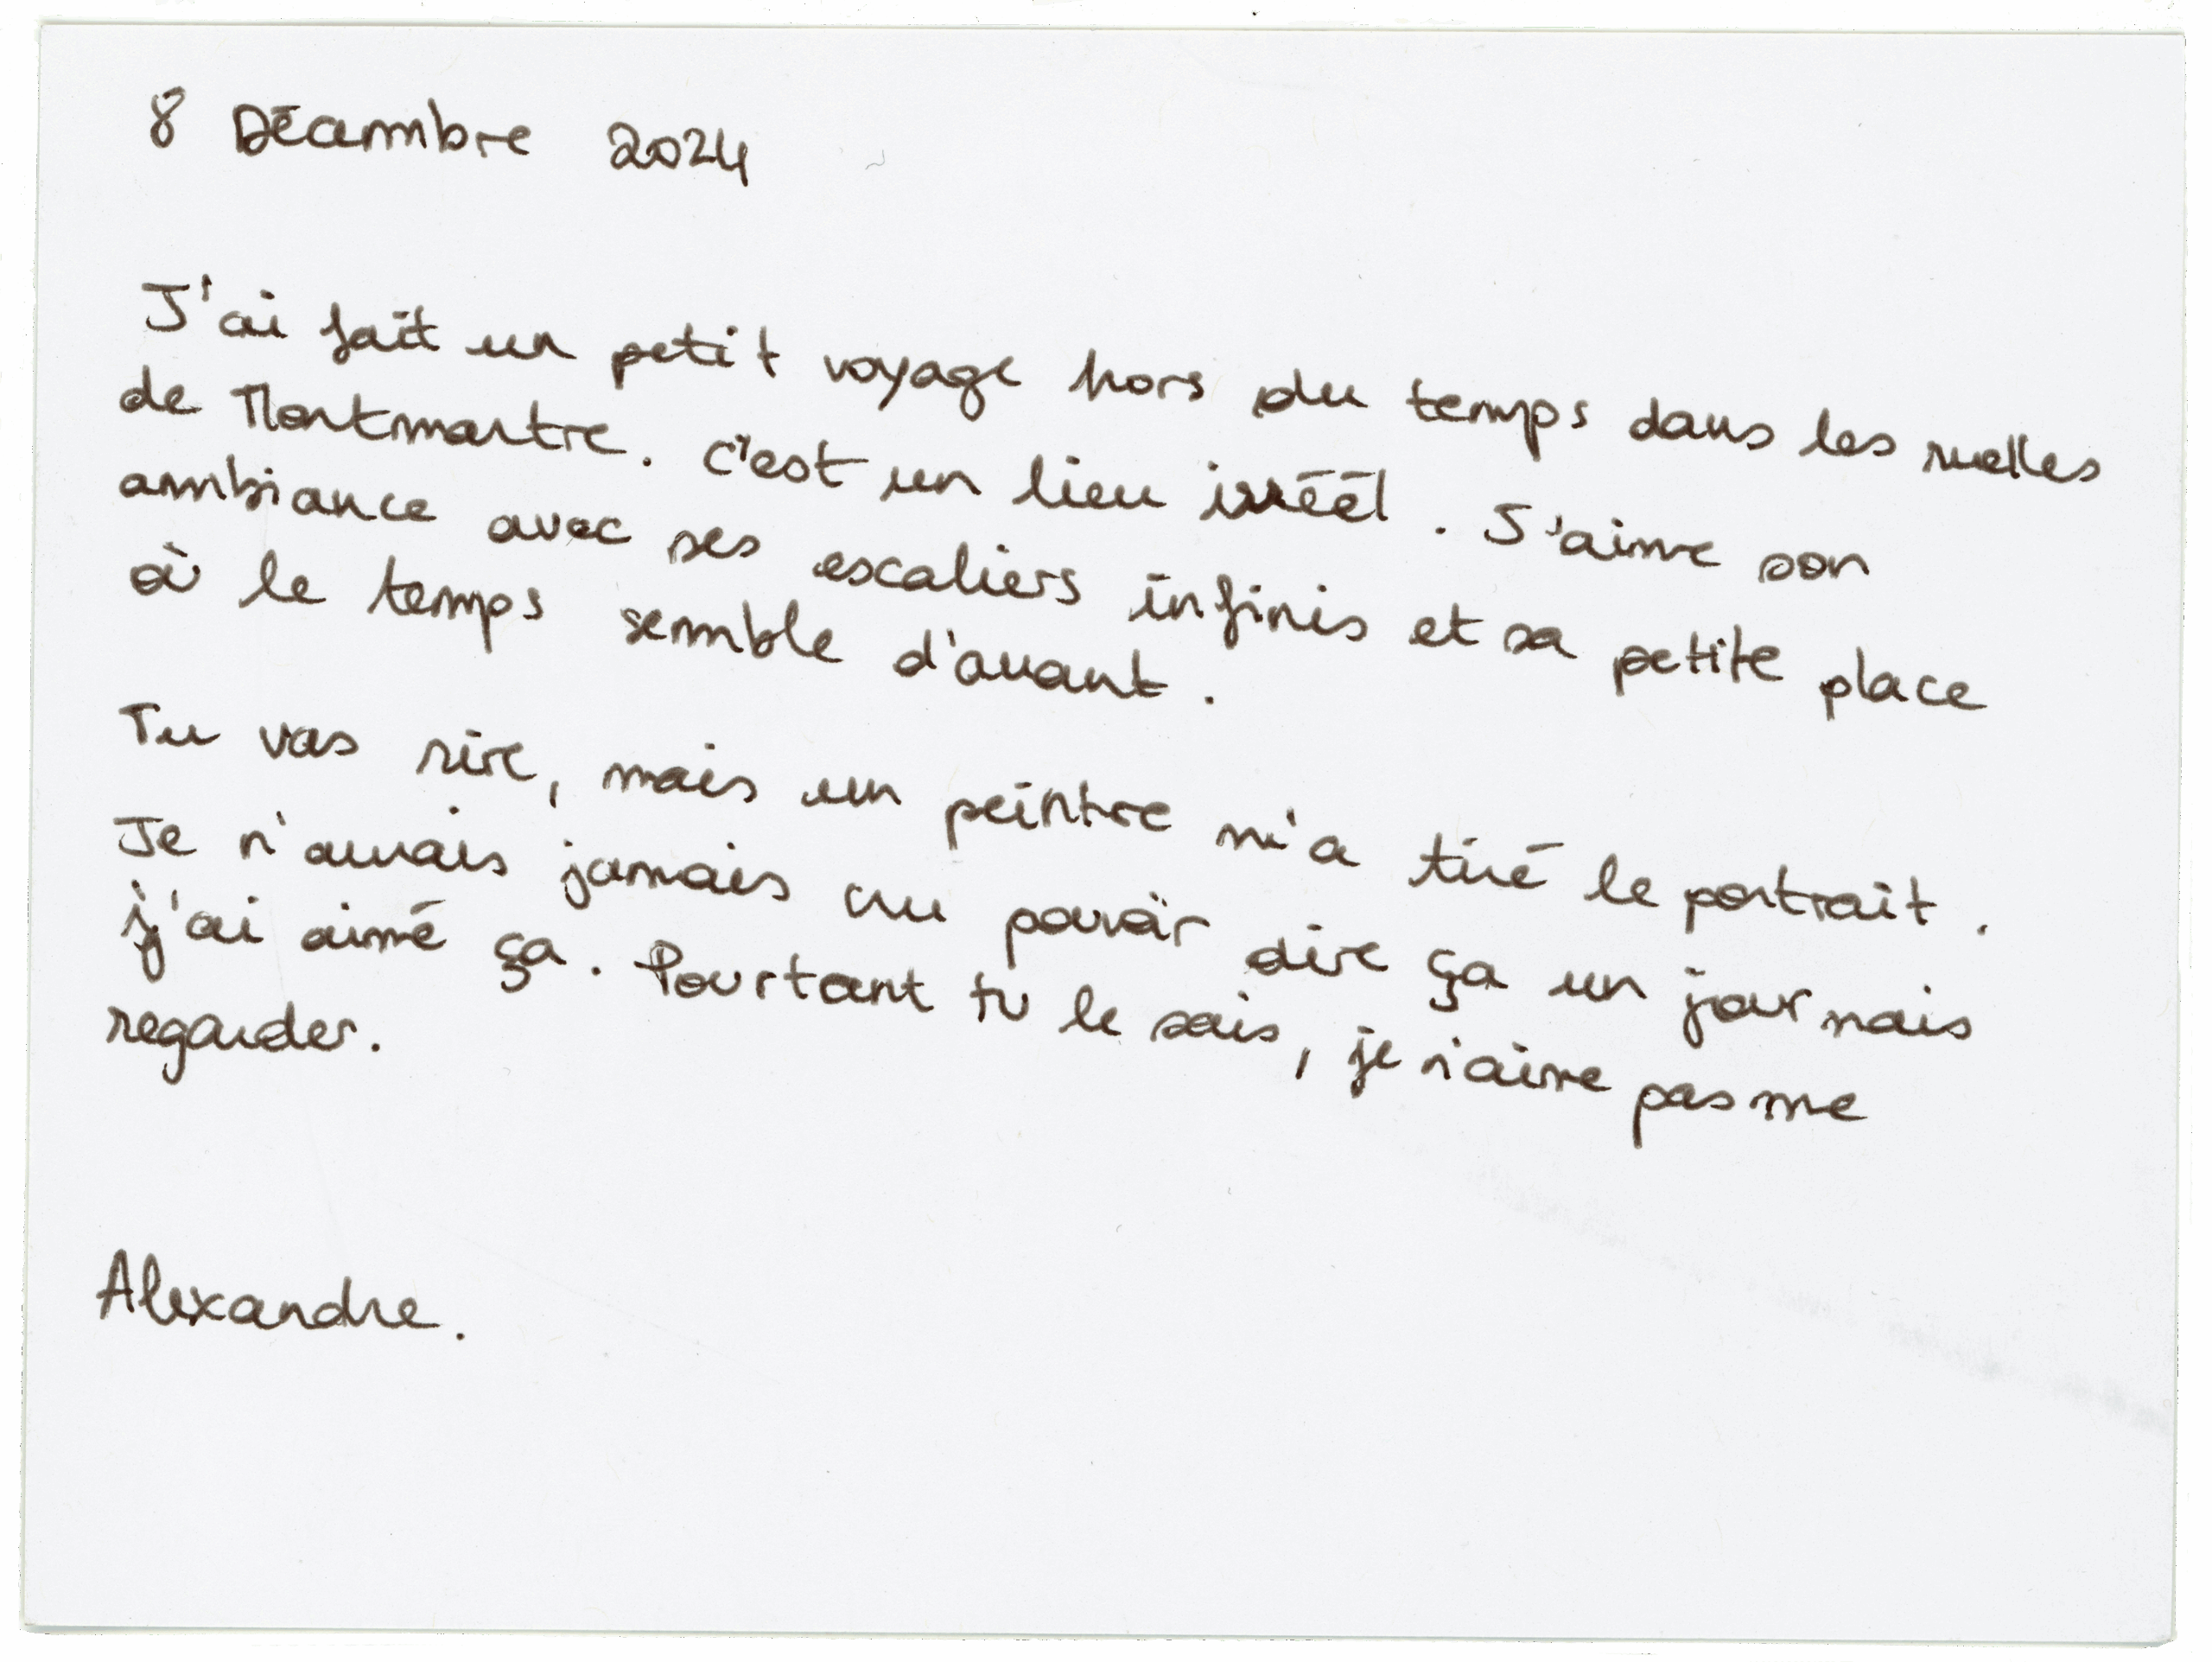 8 Décembre 2024
J'ai fait un petit voyage hors du temps dans les ruelles
de Montmartre. C'est un lieu irréél. J'aime son
ambiance avec ses escaliers infinis et sa petite place
où le temps semble d'avant.
Tu vas rire, mais un peintre m'a tiré le portrait.
Je n'aurais jamais cru pouvoir dire ça un jour mais
j'ai aimé ça. Pourtant tu le sais, je n'aime pas me
regarder.
Alexandre.